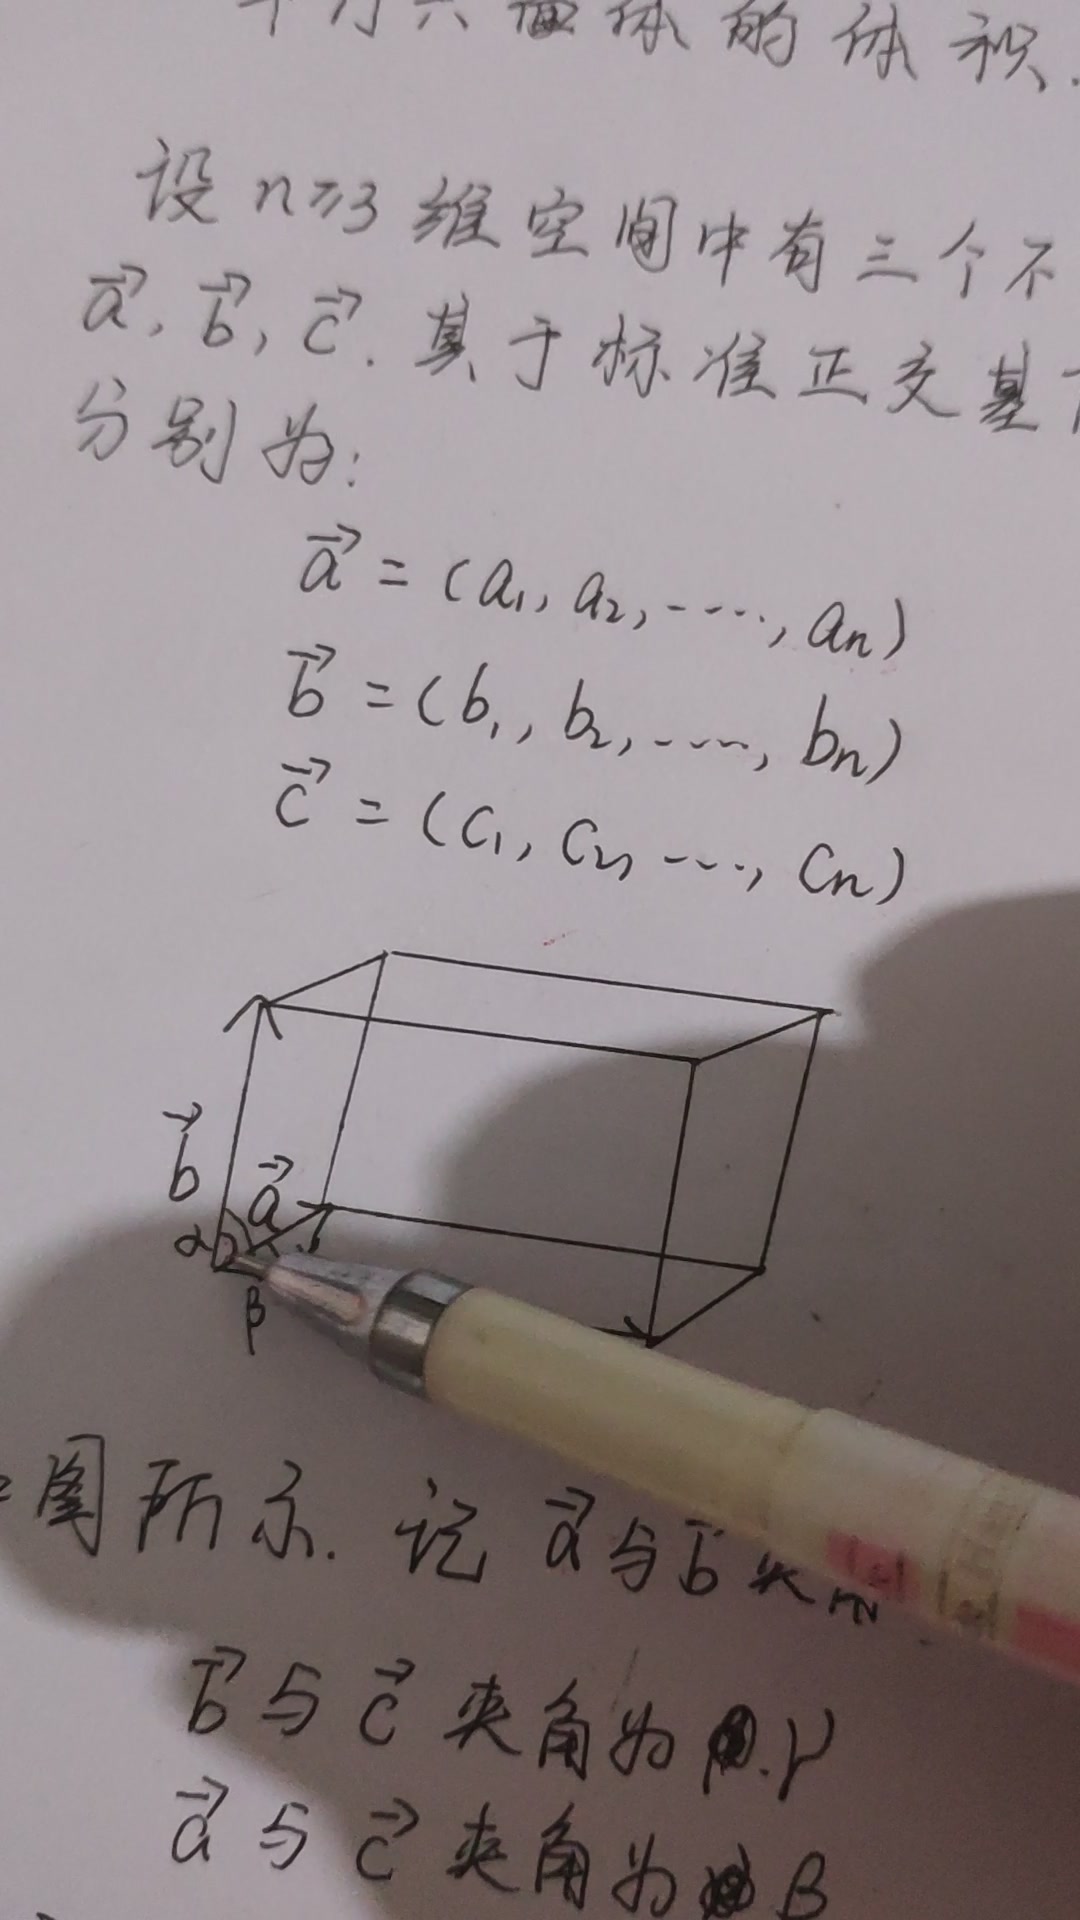 平行六面体的体积.
设 n≥3 维空间中有三个不
a⃗, b⃗, c⃗. 其于标准正交基下
分别为:
a⃗ = (a₁, a₂, ……, aₙ)
b⃗ = (b₁, b₂, ……, bₙ)
c⃗ = (c₁, c₂, ……, cₙ)
b⃗
a⃗
α
β
图所示. 记 a⃗ 与 b⃗ 夹角
b⃗ 与 c⃗ 夹角为 γ
a⃗ 与 c⃗ 夹角为 β